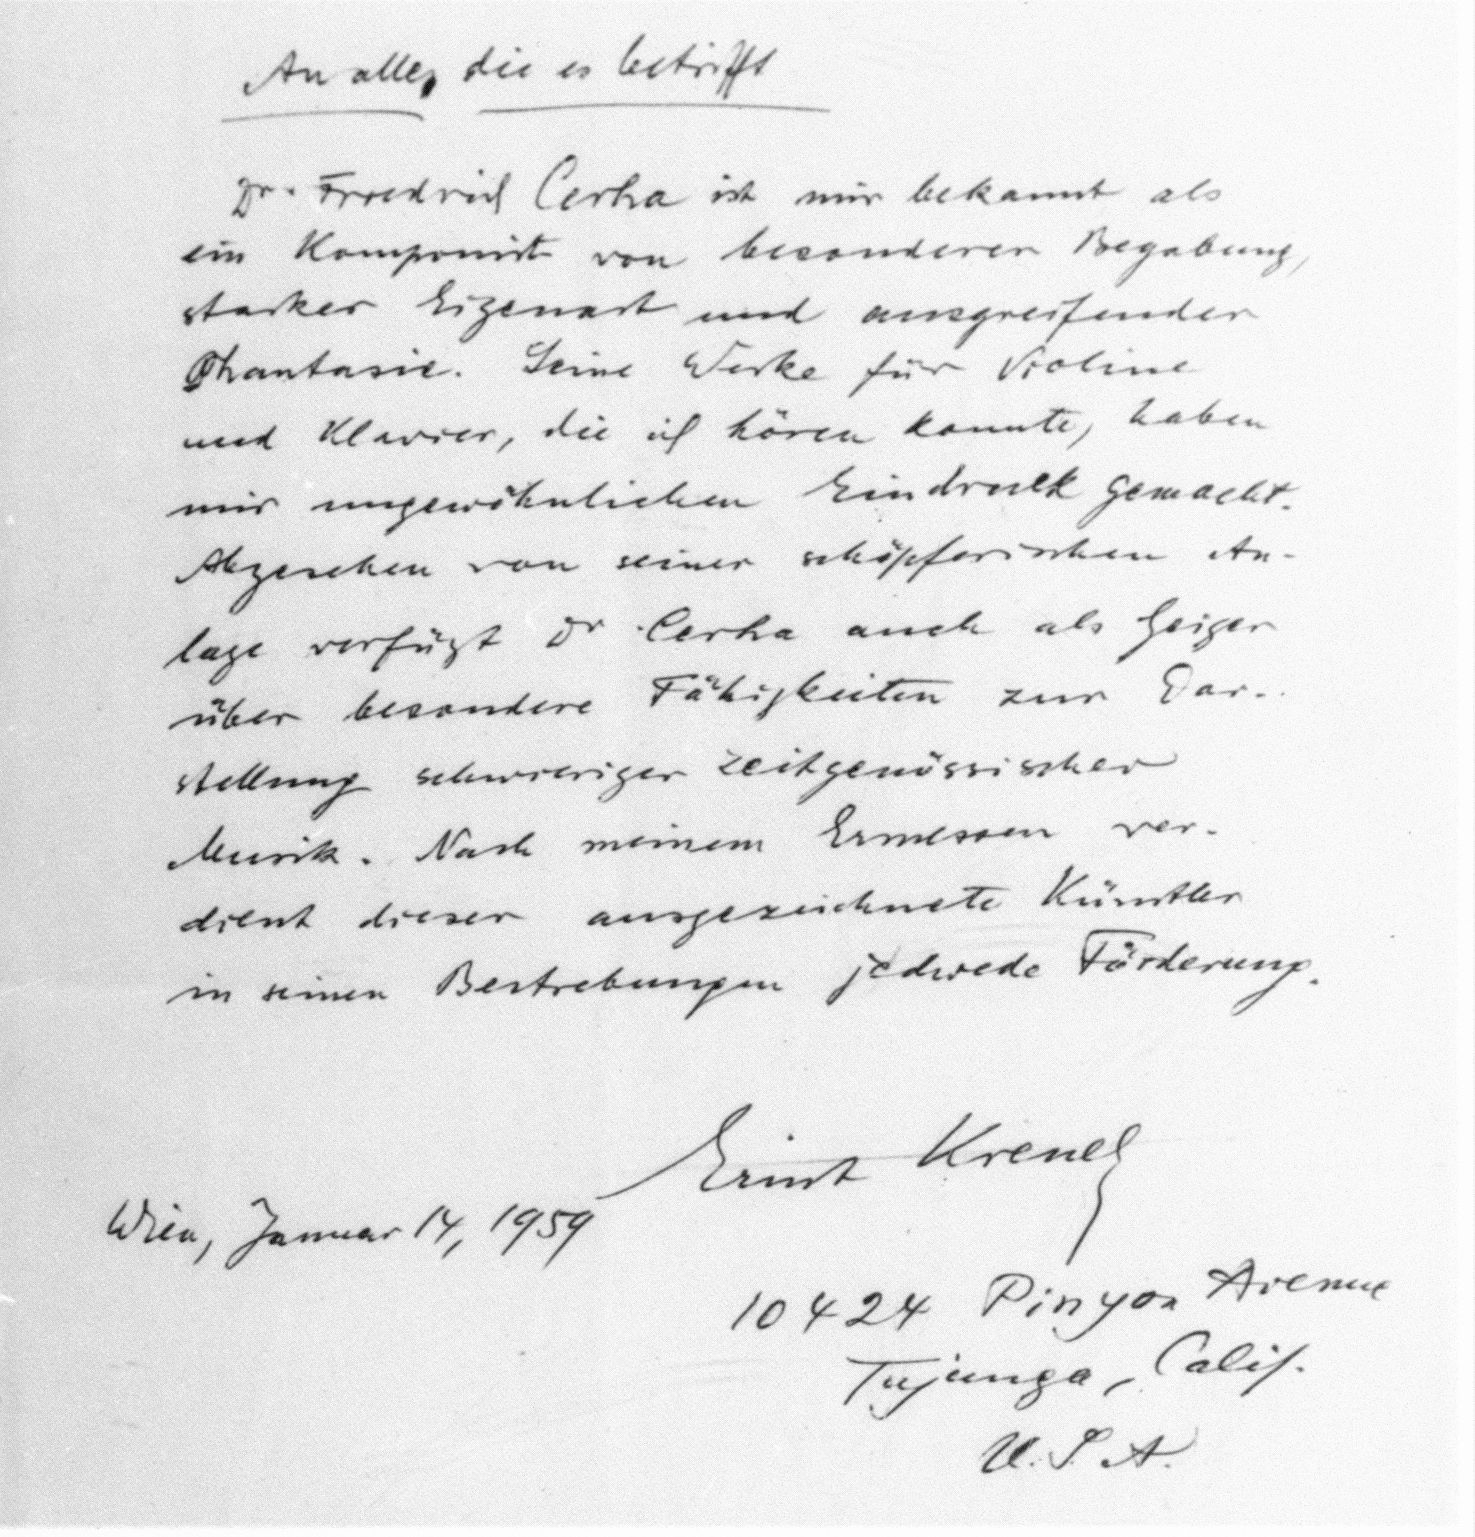 An alle, die es betrifft
Dr. Friedrich Cerha ist mir bekannt als
ein Komponist von besonderer Begabung,
starker Eigenart und ausgreifender
Phantasie. Seine Werke für Violine
und Klavier, die ich hören konnte, haben
mir ungewöhnlichen Eindruck gemacht.
Abgesehen von seiner schöpferischen An-
lage verfügt Dr. Cerha auch als Geiger
über besondere Fähigkeiten zur Dar-
stellung schwieriger zeitgenössischer
Musik. Nach meinem Ermessen ver-
dient dieser ausgezeichnete Künstler
in seinen Bestrebungen jedwede Förderung.
Ernst Krenek
Wien, Januar 14, 1959
10424 Pinyon Avenue
Tujunga, Calif.
U.S.A.